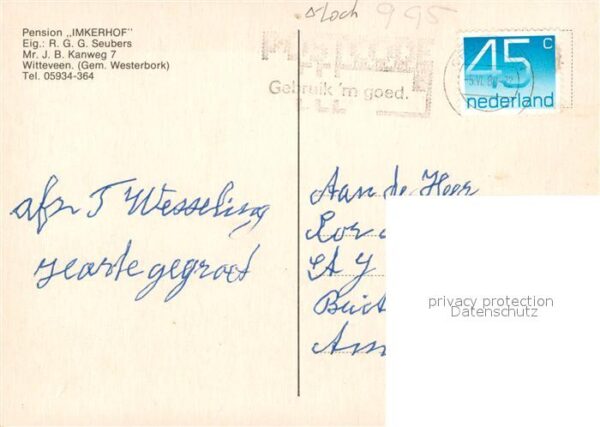 Pension „IMKERHOF"
Eig.: R. G. G. Seubers
Mr. J. B. Kanweg 7
Witteveen, (Gem. Westerbork)
Tel. 05934-364
995
POSTCODE
Gebruik 'm goed.
45 c
nederland
afz J Wesseling
Harte gegroet
Aan de Heer
privacy protection
Datenschutz